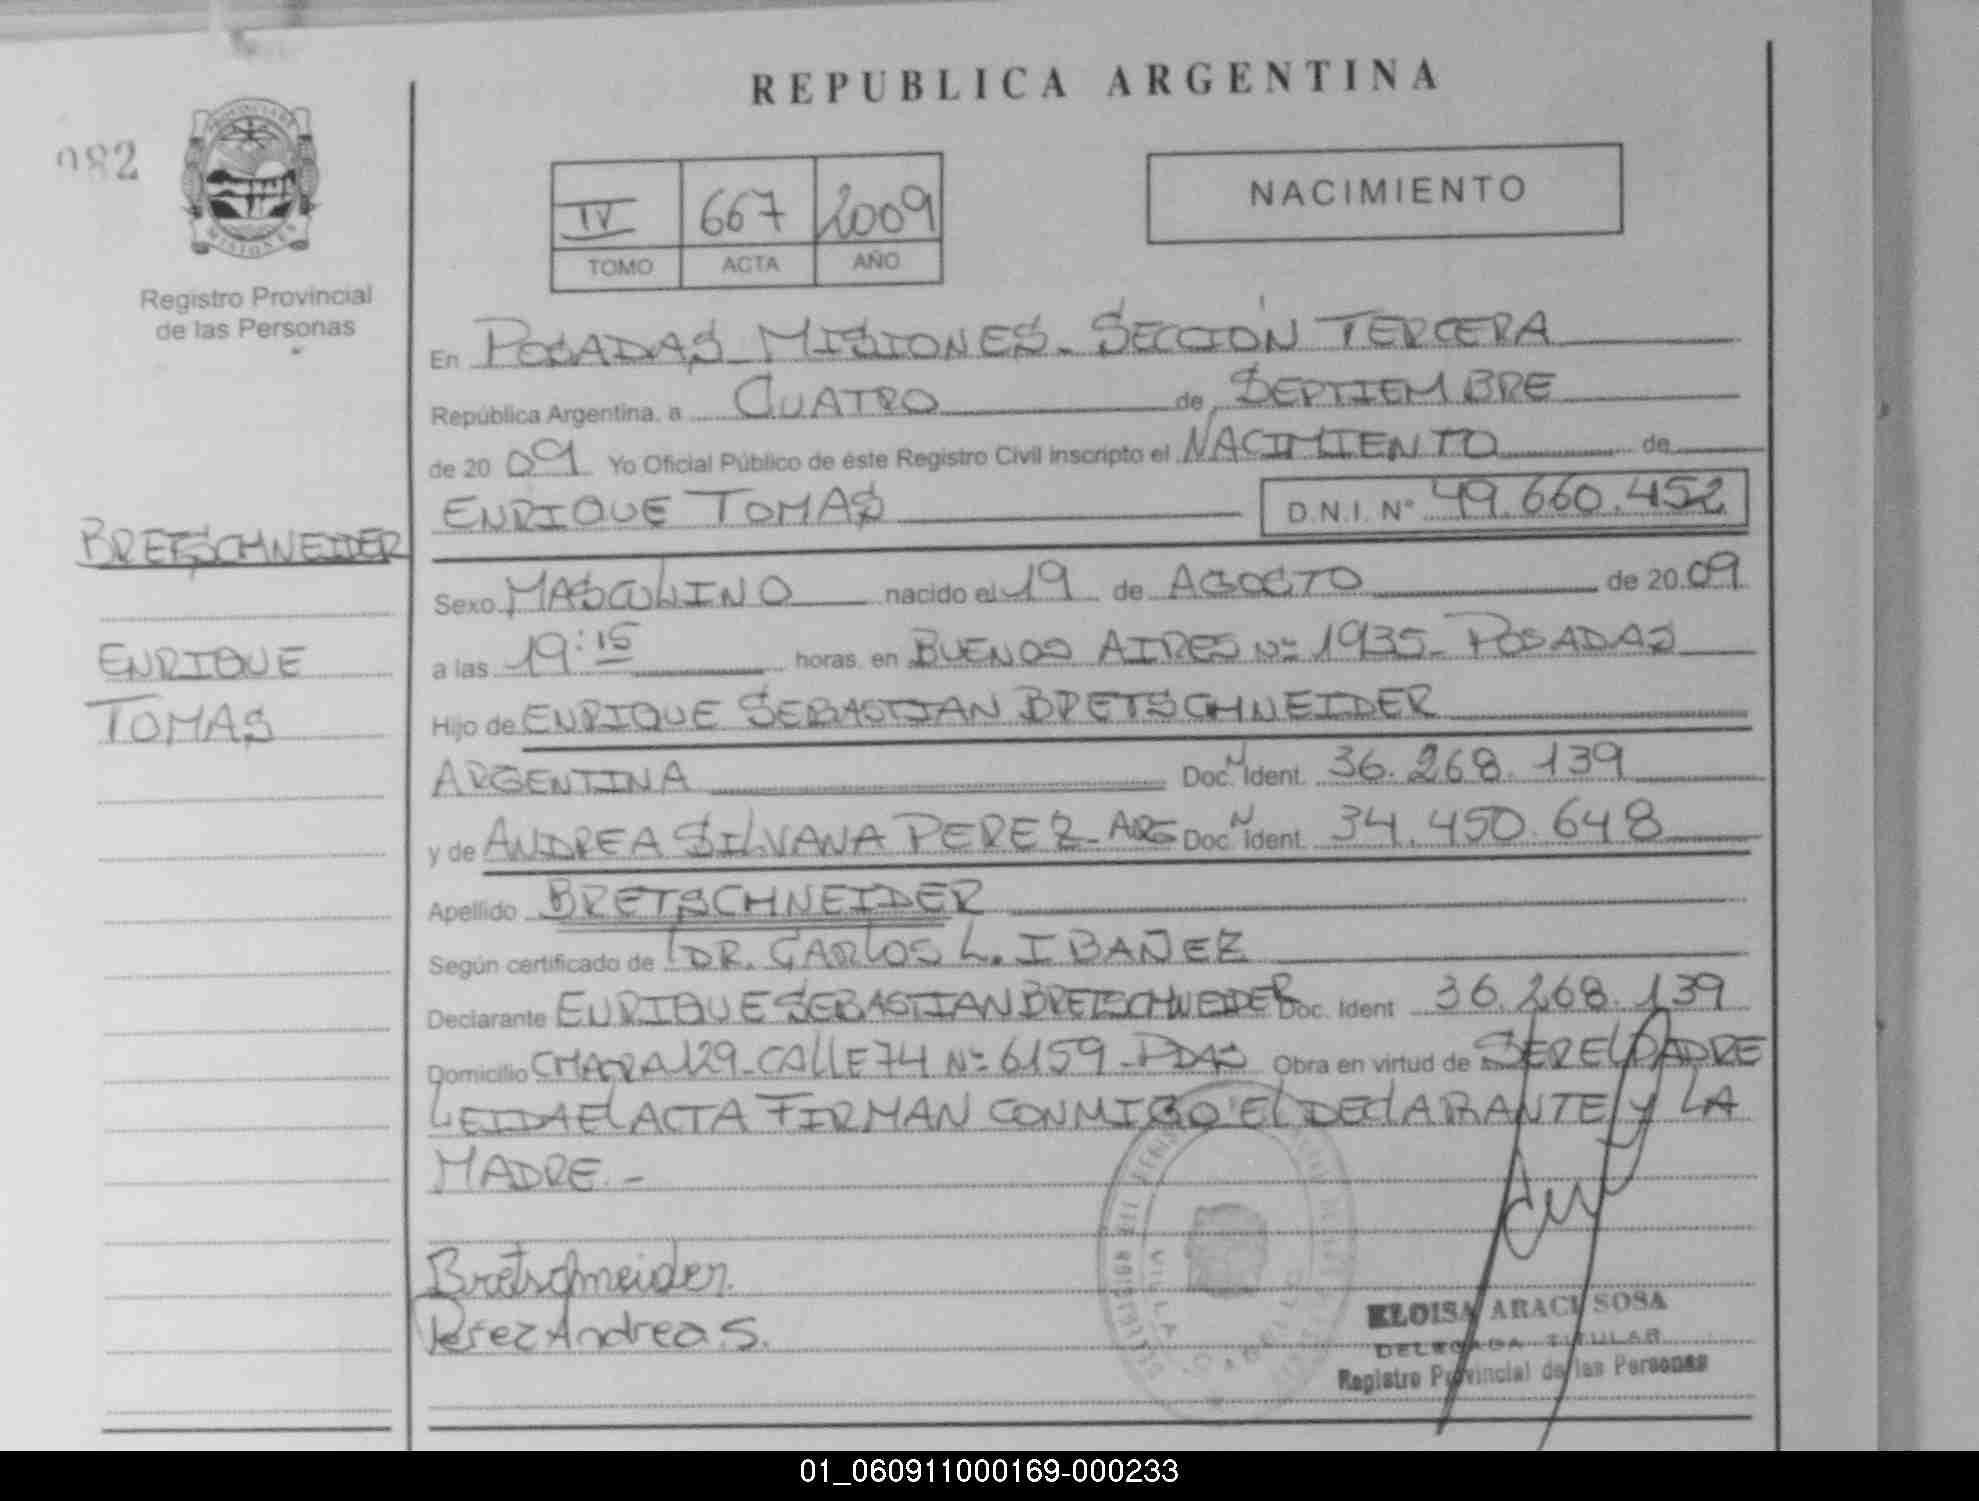 REPUBLICA ARGENTINA
982
PROVINCIA DE
MISIONES
Registro Provincial
de las Personas
IV 667 2009
TOMO ACTA AÑO
NACIMIENTO
En POSADAS MISIONES - SECCIÓN TERCERA
República Argentina, a CUATRO de SEPTIEMBRE
de 20 09 Yo Oficial Público de éste Registro Civil inscripto el NACIMIENTO de
ENRIQUE TOMAS D.N.I. N° 49.660.452
BRETSCHNEIDER
ENRIQUE
TOMAS
Sexo MASCULINO nacido el 19 de AGOSTO de 20 09
a las 19:15 horas en BUENOS AIRES Nº 1935 - POSADAS
Hijo de ENRIQUE SEBASTIAN BRETSCHNEIDER
ARGENTINA Doc. N Ident. 36.268.139
y de ANDREA SILVANA PEREZ - ARG Doc. N Ident. 34.450.648
Apellido BRETSCHNEIDER
Según certificado de DR. CARLOS L. IBAÑEZ
Declarante ENRIQUE SEBASTIAN BRETSCHNEIDER Doc. Ident 36.268.139
Domicilio CHACRA 129 - CALLE 74 Nº 6159 - PDAS Obra en virtud de SER EL PADRE
LEIDA EL ACTA FIRMAN CONMIGO EL DECLARANTE Y LA
MADRE.-
Bretschneider.
Perez Andrea S.
VILLA
ELOISA ARACI SOSA
DELEGADA TITULAR
Registro Provincial de las Personas
01_060911000169-000233